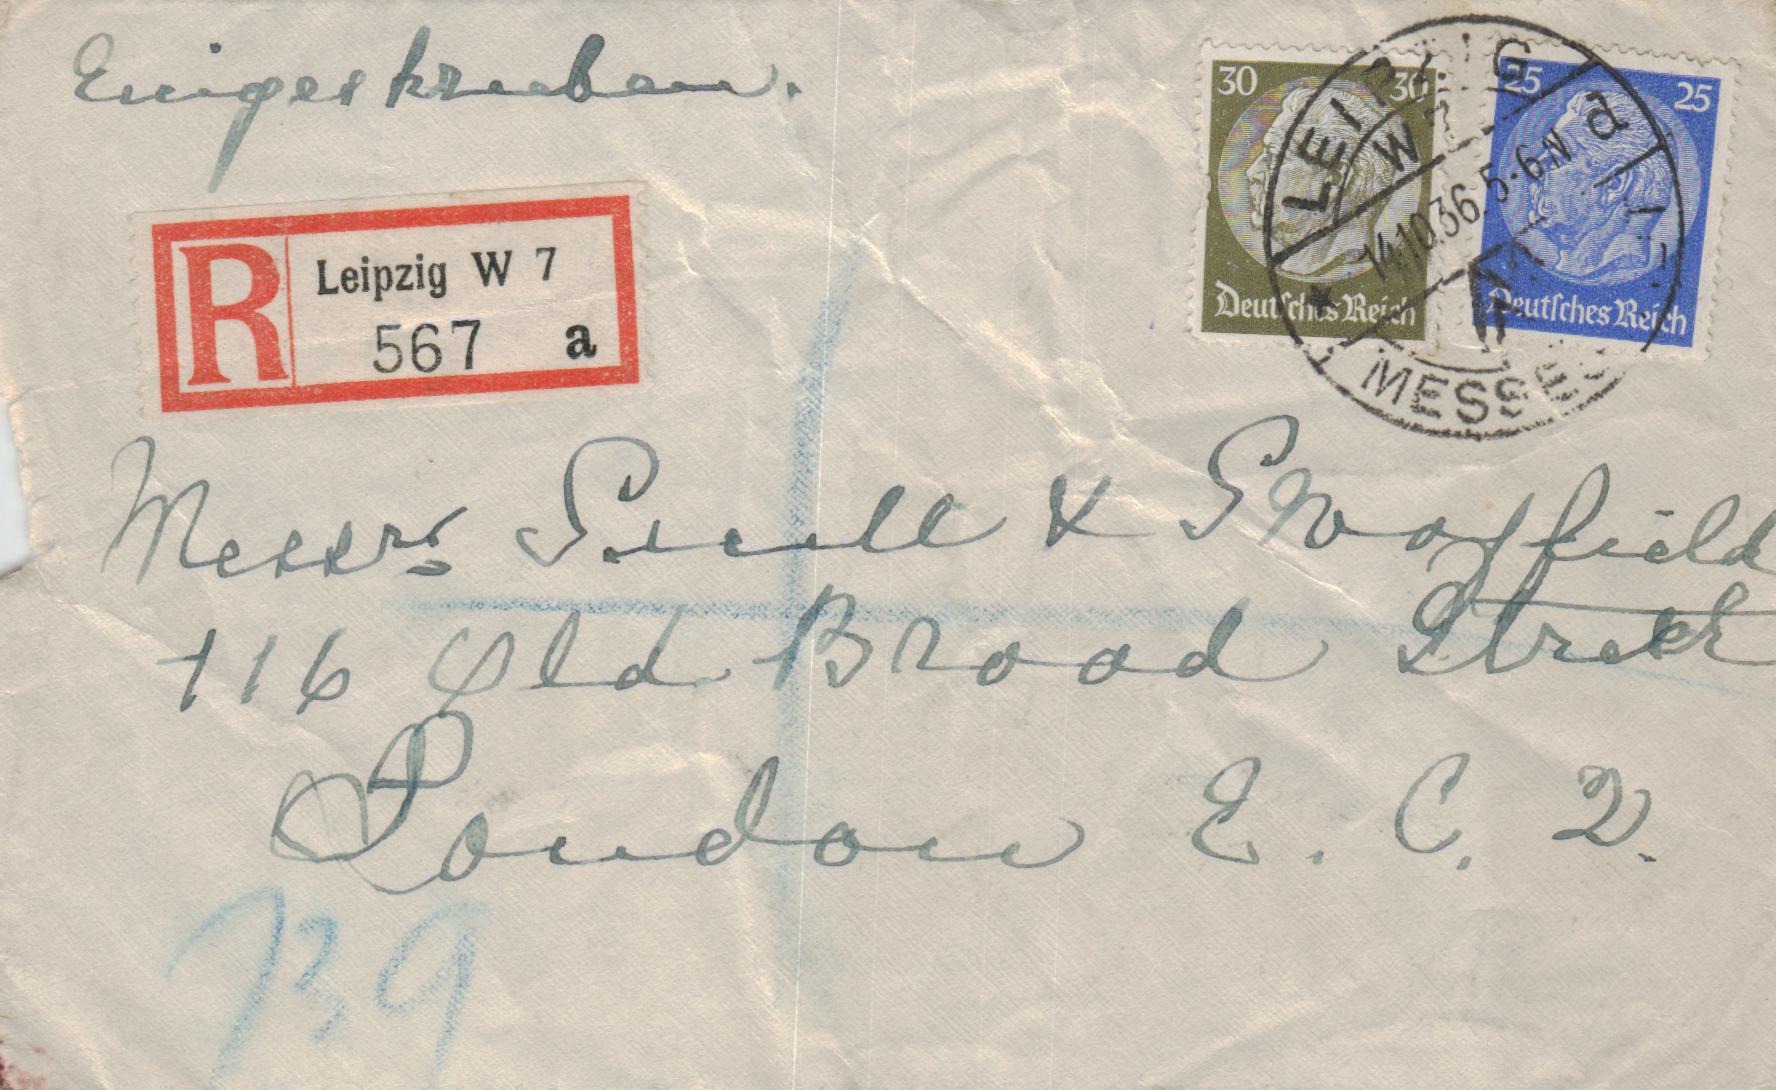 Eingeschrieben.
R
Leipzig W 7
567 a
30 30
Deutsches Reich
25 25
Deutsches Reich
LEIPZIG
W 7 d
14.10.36.5-6N
Messrs & 
116 Old Broad Street
London E. C. 2.
739